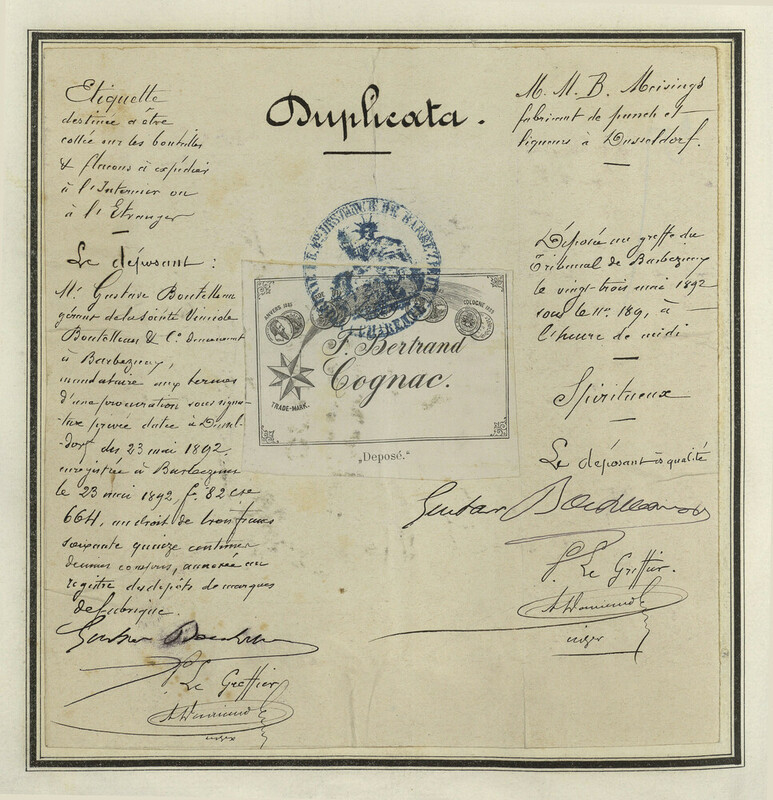 Duplicata.
Etiquette
destinée a être
collée sur les bouteilles
& flacons à expédier
à l'Interieur ou
à l'Etranger
Le déposant :
Mr Gustave Boutelleau
gérant de la Société Vinicole
Boutelleau & Cie demeurant
à Barbezieux,
mandataire aux termes
d'une procuration sous signa-
ture privée datée à Dussel-
dorf, du 23 mai 1892.
enregistrée à Barbezieux
le 23 mai 1892, fo 82 cse
664, au droit de trois francs
soixante quinze centimes
décimes compris, annexée au
registre des dépôts de marques
de fabrique.
Gustave Boutelleau
Le Greffier
M. M. B. Meising
fabricant de punch et
liqueurs à Dusseldorf.
Déposée au greffe du
Tribunal de Barbezieux
le vingt-trois mai 1892
sous le No 189, à
l'heure de midi
Spiritueux
Le déposant ès qualité
Gustave Boutelleau
Le Greffier.
ANVERS 1885
COLOGNE 1889
F. Bertrand
Cognac.
TRADE-MARK.
„Deposé.“